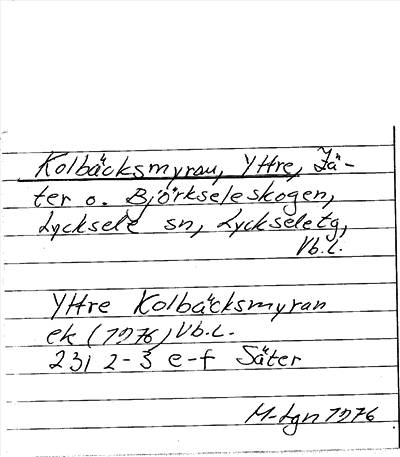 Kolbäcksmyran, Yttre, Sä-
ter o. Björkseleskogen,
Lycksele sn, Lyckseletg,
Vb.l.
Yttre Kolbäcksmyran
ek (1976) Vb.l.
23I 2-3 e-f Säter
M-Lgn 1976